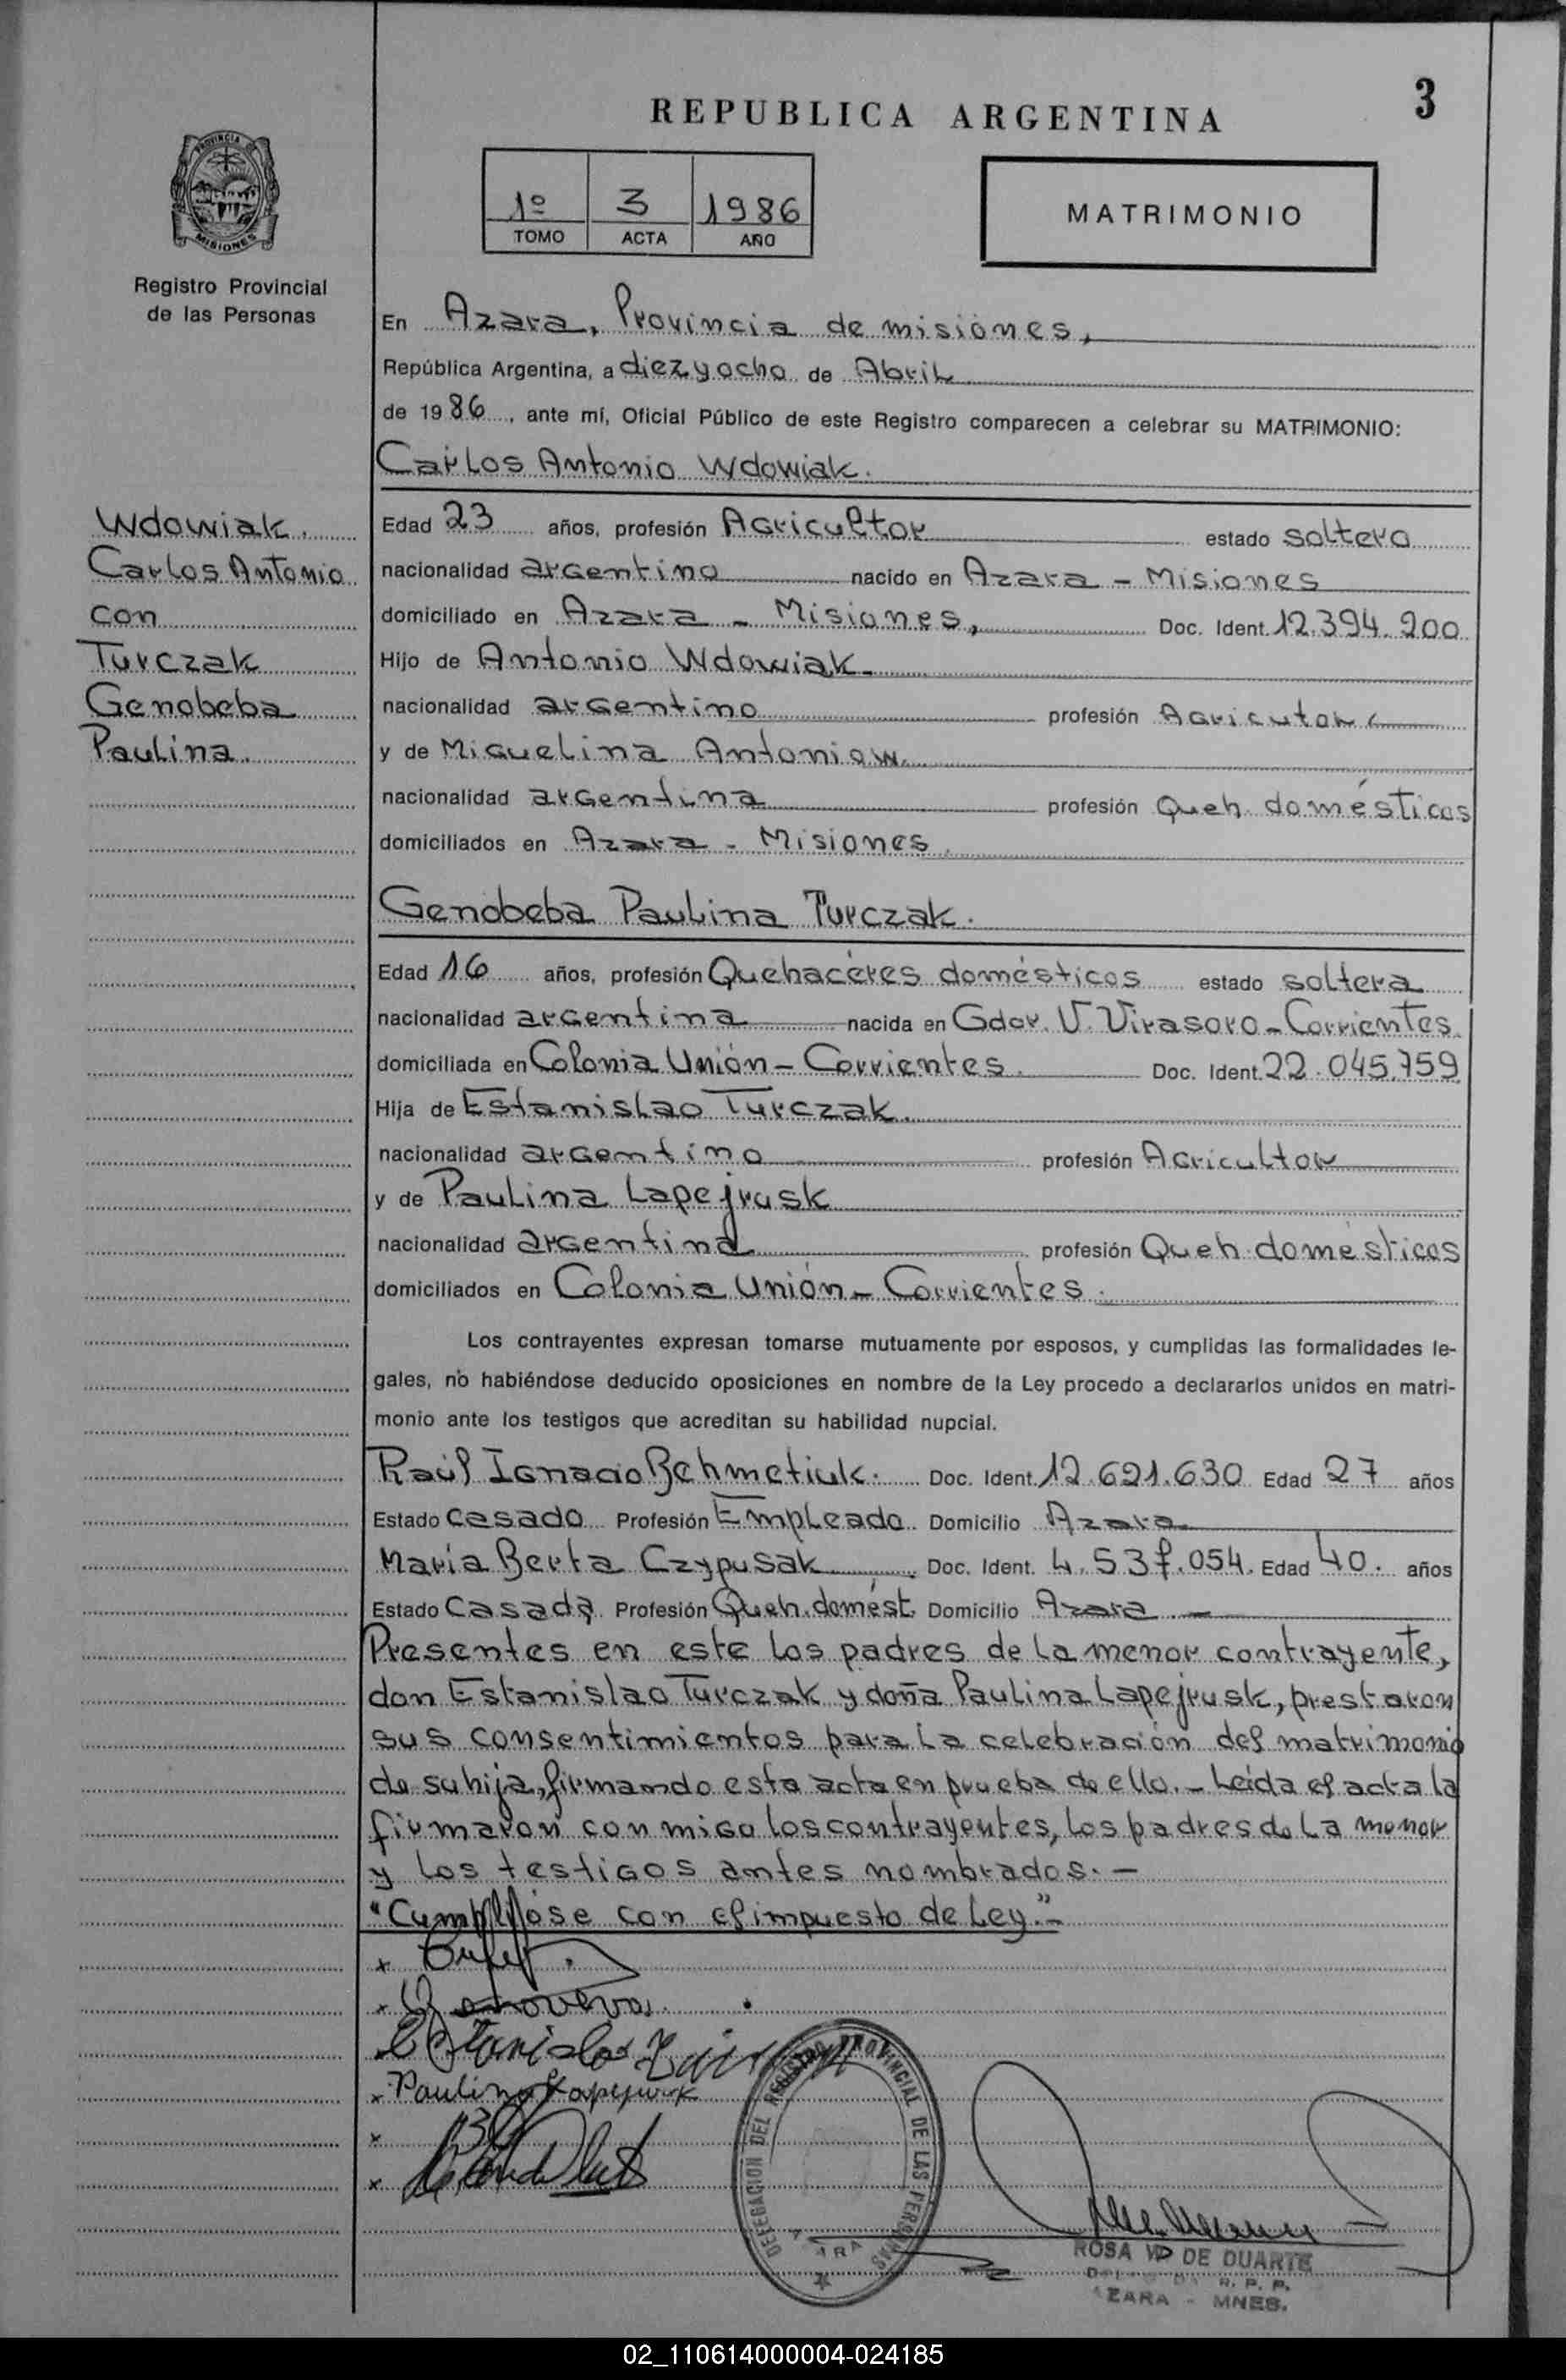 3
REPUBLICA ARGENTINA
PROVINCIA DE
MISIONES
Registro Provincial
de las Personas
1º 3 1986
TOMO ACTA AÑO
MATRIMONIO
En Azara, Provincia de misiones,
República Argentina, a diez y ocho de Abril
de 1986, ante mí, Oficial Público de este Registro comparecen a celebrar su MATRIMONIO:
Carlos Antonio Wdowiak.
Wdowiak.
Carlos Antonio
con
Turczak
Genobeba
Paulina.
Edad 23 años, profesión Agricultor estado soltero
nacionalidad argentino nacido en Azara - Misiones
domiciliado en Azara - Misiones, Doc. Ident. 12.394.200
Hijo de Antonio Wdowiak
nacionalidad argentino profesión Agricutor
y de Miguelina Antoniow.
nacionalidad argentina profesión Queh domésticos
domiciliados en Azara - Misiones.
Genobeba Paulina Turczak.
Edad 16 años, profesión Quehacéres domésticos estado soltera
nacionalidad argentina nacida en Gdor. V. Virasoro - Corrientes
domiciliada en Colonia Unión - Corrientes. Doc. Ident. 22.045.759
Hija de Estanislao Turczak.
nacionalidad argentino profesión Agricultor
y de Paulina Lapejrusk
nacionalidad argentina profesión Queh domésticos
domiciliados en Colonia Unión - Corrientes.
Los contrayentes expresan tomarse mutuamente por esposos, y cumplidas las formalidades le-
gales, no habiéndose deducido oposiciones en nombre de la Ley procedo a declararlos unidos en matri-
monio ante los testigos que acreditan su habilidad nupcial.
Raúl Ignacio Behmetiuk. Doc. Ident. 12.621.630 Edad 27 años
Estado casado Profesión Empleado Domicilio Azara
María Berta Czypusak Doc. Ident. 4.537.054. Edad 40. años
Estado Casada Profesión Queh. domést. Domicilio Azara. -
Presentes en este los padres de la menor contrayente,
don Estanislao Turczak y doña Paulina Lapejrusk, prestaron
sus consentimientos para la celebración del matrimonio
de su hija, firmando esta acta en prueba de ello. - Leída el acta la
firmaron conmigo los contrayentes, los padres de la menor
y los testigos antes nombrados. -
"Cumplióse con el impuesto de Ley." -
x
x Genoveva
x Estanislao
x Paulina Lapejrusk
x
x
DELEGACION DEL REGISTRO PROVINCIAL DE LAS PERSONAS
AZARA
ROSA VD DE DUARTE
R. P. P.
AZARA - MNES.
02_110614000004-024185